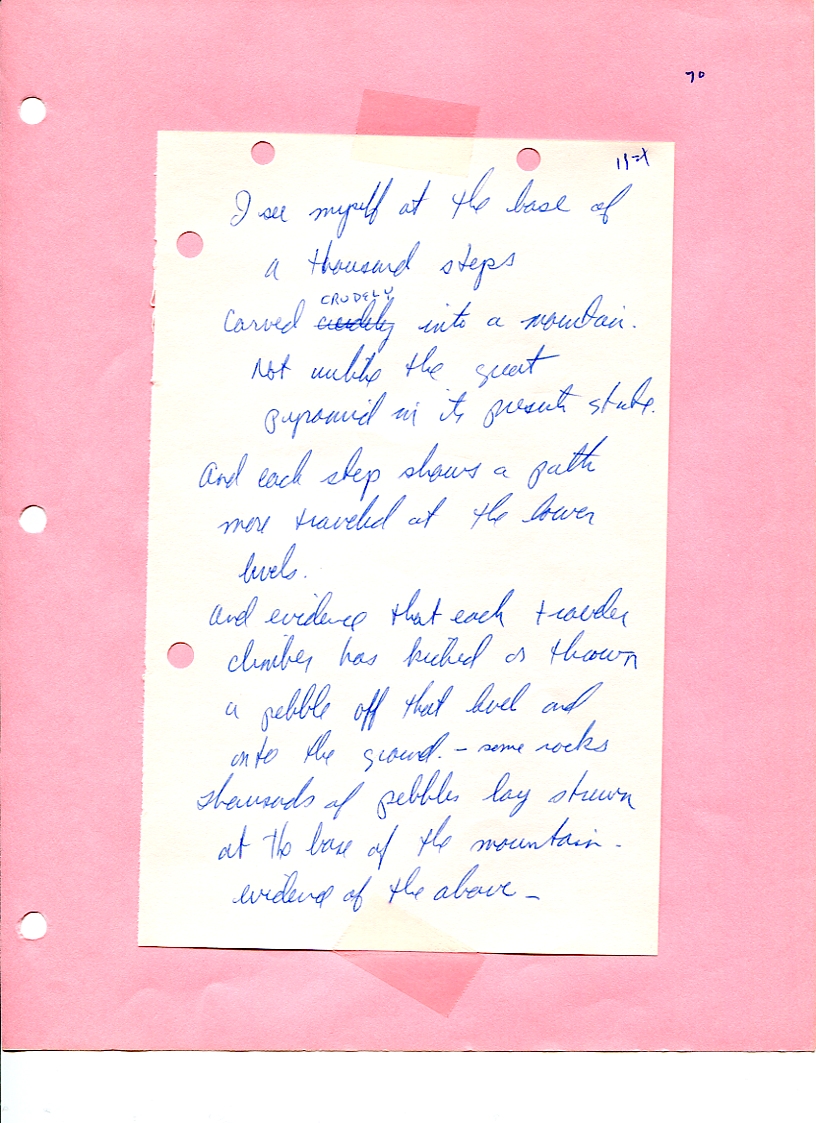 70
I see myself at the base of
a thousand steps
CRUDELY
Carved crudely into a mountain.
Not unlike the great
pyramid in its present state.
And each step shows a path
more traveled at the lower
levels.
And evidence that each traveler
climber has kicked or thrown
a pebble off that level and
onto the ground. - some rocks
thousands of pebbles lay strewn
at the base of the mountain -
evidence of the above -